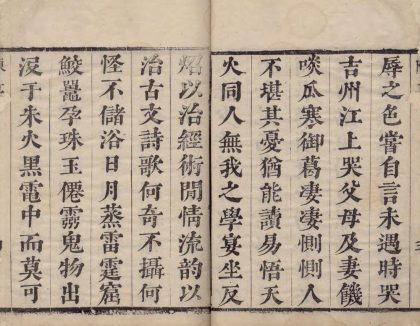 辱之色嘗自言未遇時哭
吉州江上哭父母及妻饑
啖瓜寒御葛凄凄惻惻人
不堪其憂猶能讀易悟天
火同人無我之學宴坐反
炤以治經術閒情流韵以
治古文詩歌何奇不攝何
怪不儲浴日月蒸雷霆窟
鮫鼉孕珠玉僊靈鬼物出
没于朱火黑電中而莫可